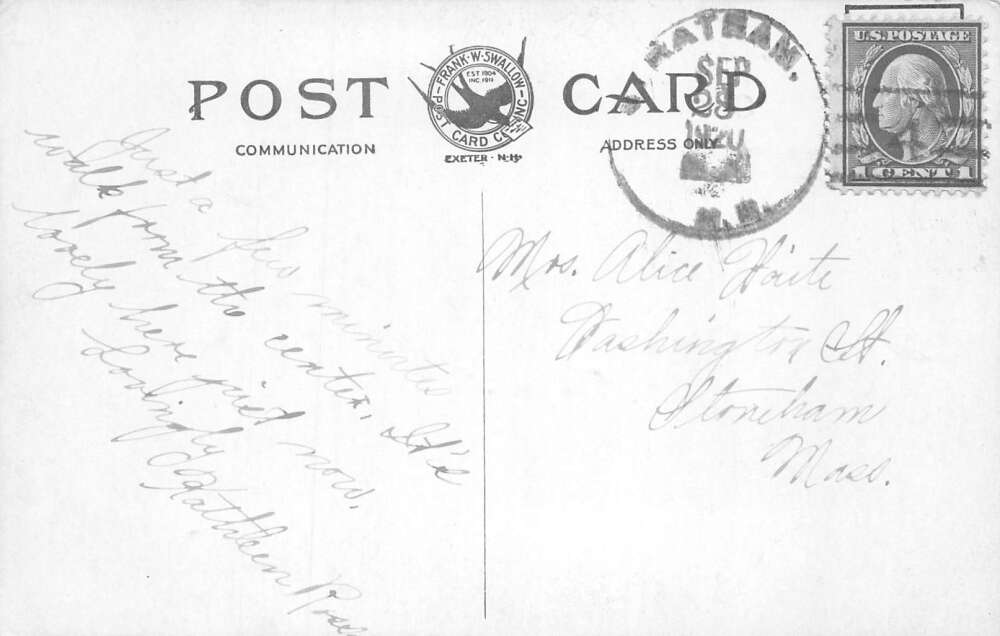 POST CARD
FRANK·W·SWALLOW
POST CARD CO. INC.
EST 1904
INC 1911
EXETER · N·H·
COMMUNICATION
ADDRESS ONLY
SEP
28
1920
N.H.
U.S. POSTAGE
1 CENT 1
Just a few minutes
walk from the center. It's
lovely here just now.
Lovingly
Kathleen
Mrs. Alice Waite
Washington St.
Stoneham
Mass.